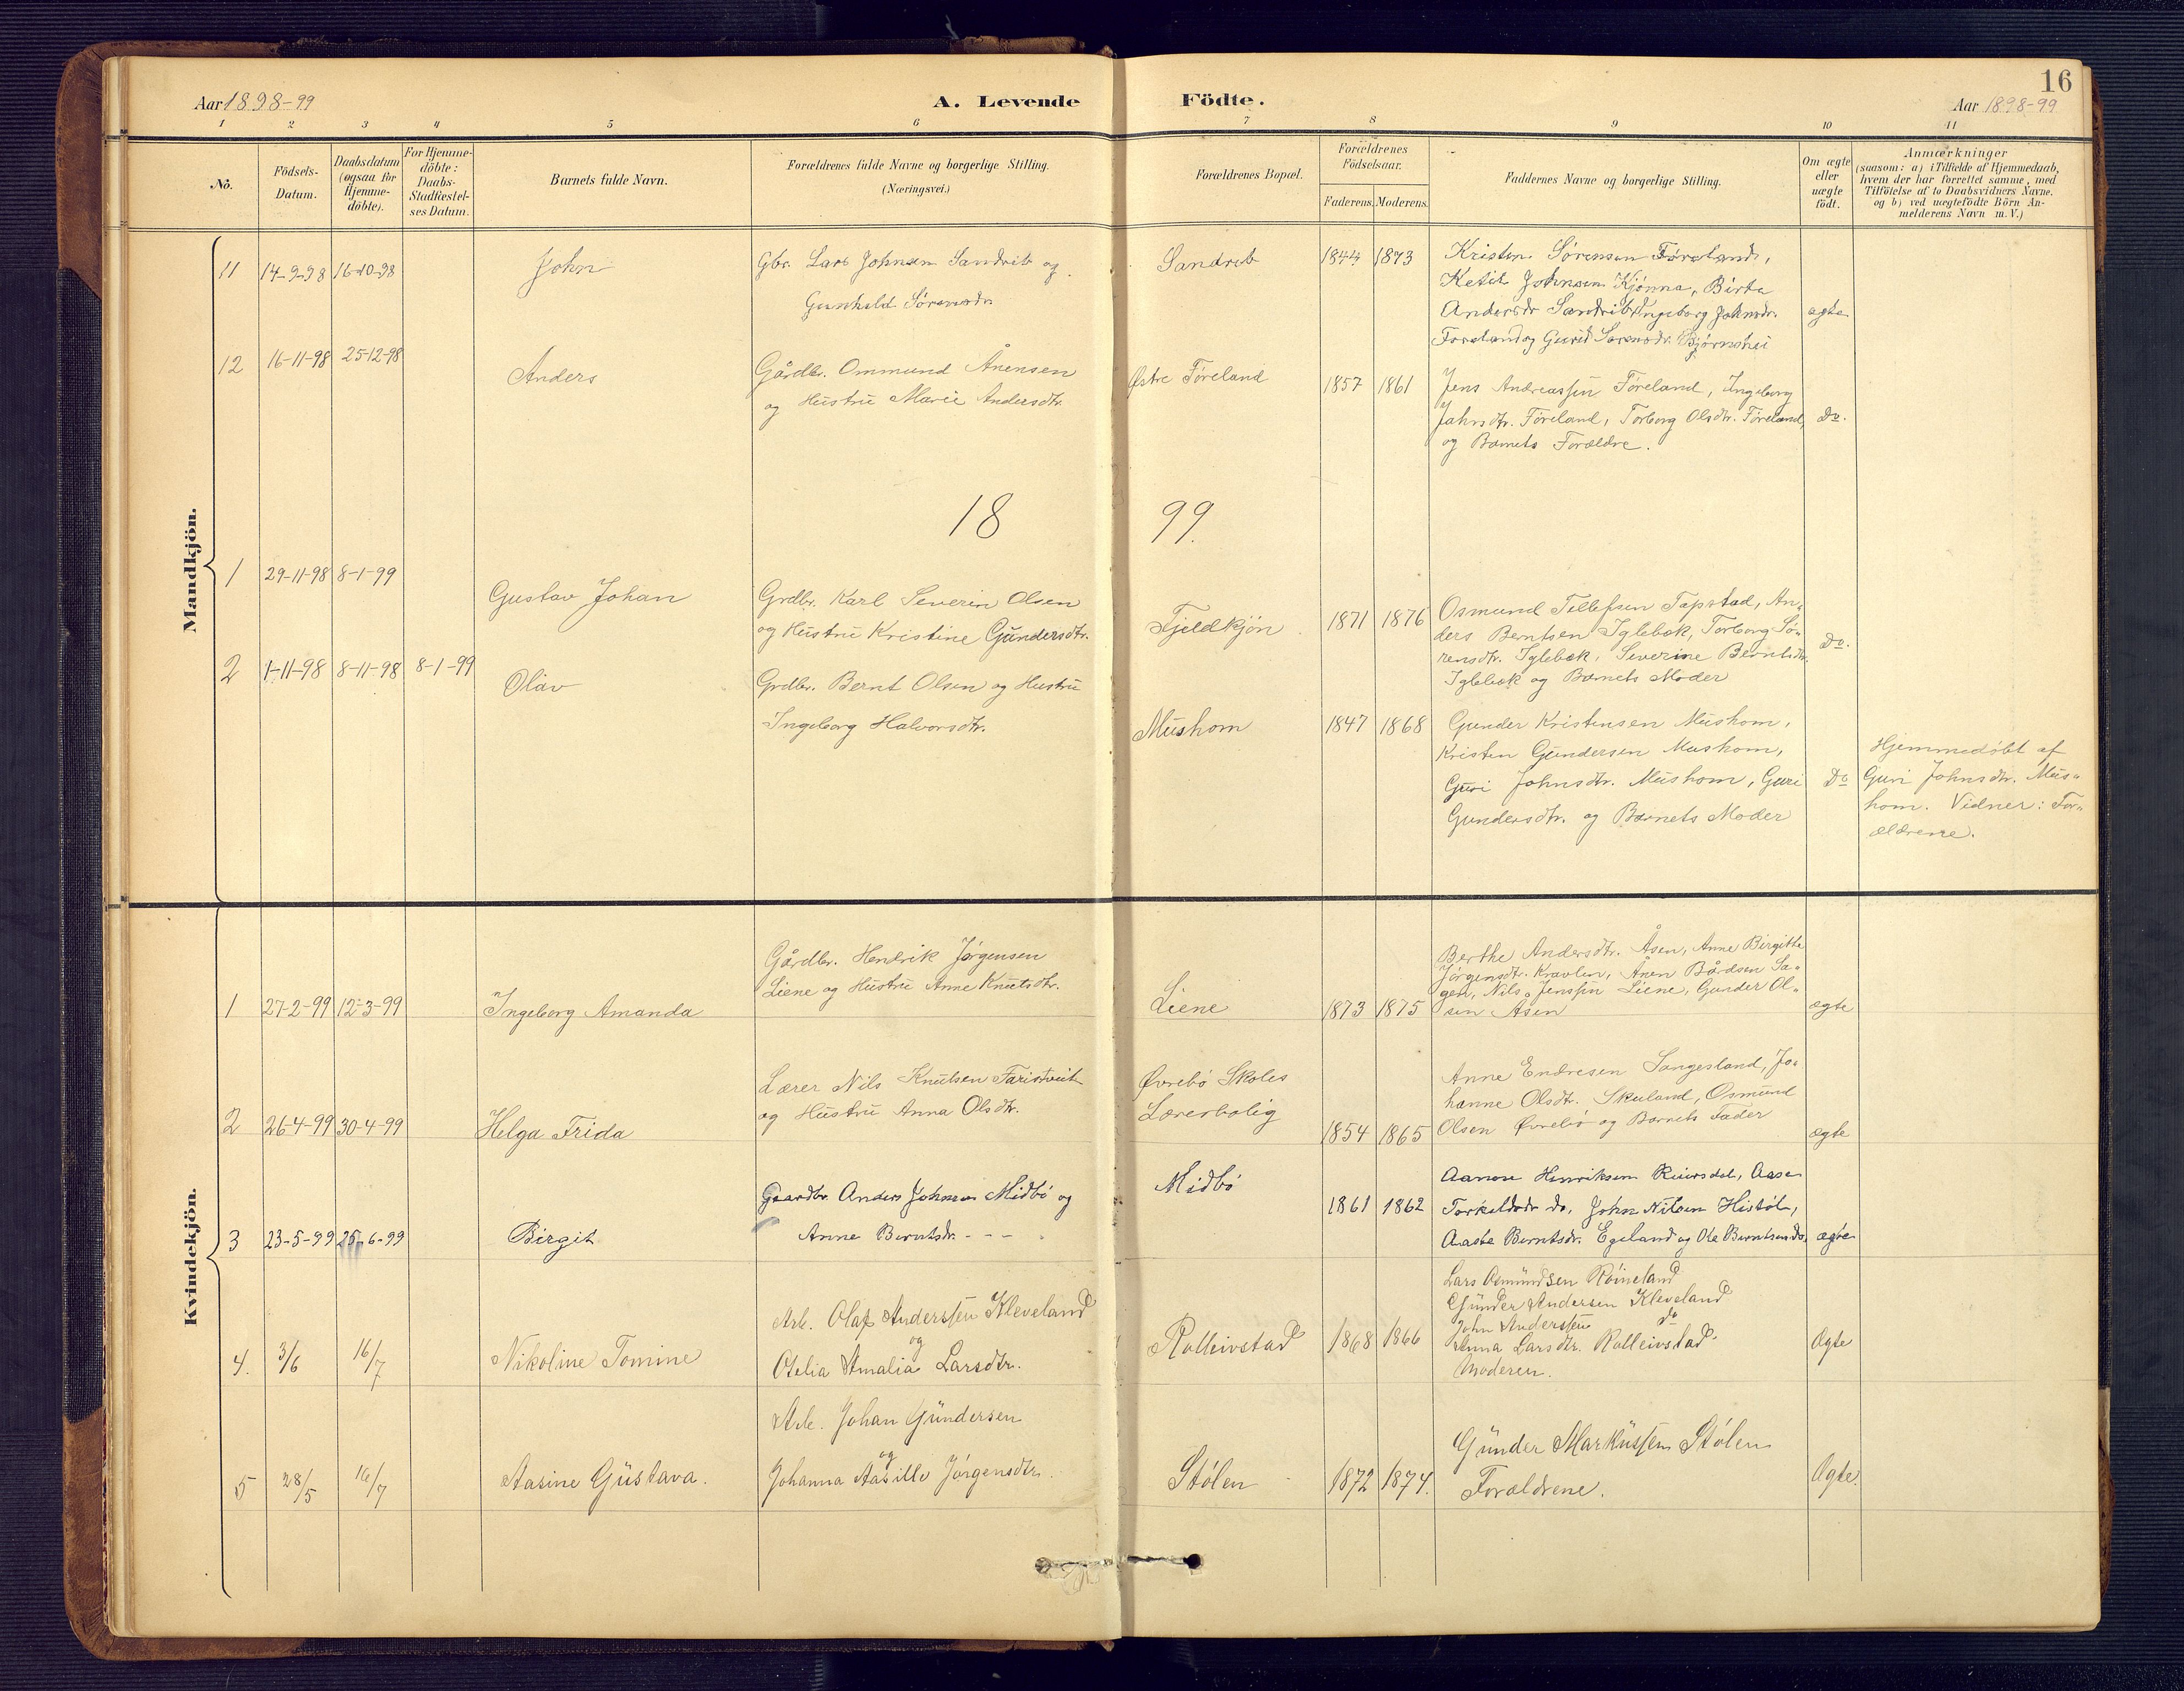 16
Aar 1898-99
A. Levende Födte.
Aar 1898-99
1 2 3 4 5 6 7 8 9 10 11
No.
Födsels-
Datum.
Daabsdatum
(ogsaa for
Hjemme-
döbte).
For Hjemme-
döbte:
Daabs-
Stadfæstel-
ses Datum.
Barnets fulde Navn.
Forældrenes fulde Navne og borgerlige Stilling.
(Næringsvei.)
Forældrenes Bopæl.
Forældrenes
Födselsaar.
Faderens. Moderens.
Faddernes Navne og borgerlige Stilling.
Om ægte
eller
uægte
födt.
Anmærkninger
(saasom: a) i Tilfælde af Hjemmedaab,
hvem der har forrettet samme, med
Tilföielse af to Daabsvidners Navne.
og b) ved uægtefödte Börn An-
melderens Navn m. V.)
Mandkjön.
11 14-9-98 16-10-98
John
Gbr. Lars Johnsen Sandrib og
Gunhild Sørensdr.
Sandreb
1844 1873
Kristen Sørensen Føreland,
Ketil Johnsen Kjønna, Birte
Andersdr Sandrib, Ingeborg Johnsdr.
Foreland og Gurid Sørensdr. Bjørnshei
ægte
12 16-11-98 25-12-98
Anders
Gårdbr. Ommund Ånensen
og Hustru Marie Andersdtr.
Østre Føreland
1857 1861
Jens Andreassen Føreland, Ingeborg
Jahnsdtr. Føreland, Torborg Olsdtr. Føreland,
og Barnets Forældre.
Do.
18 99.
1 29-11-98 8-1-99
Gustav Johan
Grdbr. Karl Severin Olsen
og Hustru Kristine Gundersdtr.
Fjeldkjön
1871 1876
Osmund Tellefsen Tapstad, An-
ders Berntsen Iglebæk, Torborg Sø-
rensdtr. Iglebæk, Severine Berntsdtr.
Iglebæk og Barnets Moder
Do.
2 1-11-98 8-11-98 8-1-99
Olav
Grdbr. Bernt Olsen og Hustru
Ingeborg Halvorsdtr.
Mushom
1847 1868
Gunder Kristensen Mushom,
Kristen Gundersen Mushom,
Guri Johnsdtr. Mushom, Guri
Gundersdtr. og Barnets Moder
Do
Hjemmedøbt af
Guri Johnsdtr. Mus-
hom. Vidner: For-
ældrene.
Kvindekjön.
1 27-2-99 12-3-99
Ingeborg Amanda
Gårdbr. Hendrik Jørgensen
Liene og Hustru Anne Knutsdtr.
Liene
1873 1875
Berthe Andersdtr. Åsen, Anne Birgitte
Jørgensdtr. Kravlen, Ånen Bårdsen Sa-
gen, Nils Jenssen Liene, Gunder Ol-
sen Åsen
ægte
2 26-4-99 30-4-99
Helga Frida
Lærer Nils Knutsen Faristveit
og Hustru Anna Olsdtr.
Øvrebö Skoles
Lærerbolig
1854 1865
Anne Endresen Sangesland, Jo-
hanne Olsdtr. Skuland, Osmund
Olsen Øvrebö og Barnets Fader
ægte
3 23-5-99 25-6-99
Birgit
Gaardbr. Anders Johnsen Midbö og
Anne Berntsdr. - - -
Midbö
1861 1862
Aanon Henriksen Reiersdal, Aase
Torkeldsdr do, John Nilsen Histöl,
Aaste Berntsdr. Egeland og Ole Berntsen do.
ægte
4. 3/6 16/7
Nikoline Tomine
Arb. Olaf Anderssen Kleveland
og
Otelia Amalia Larsdtr.
Rolleivstad
1868 1866
Lars Osmundsen Röineland
Gunder Andersen Kleveland
John Anderssen do
Anna Larsdtr. Rolleivstad
Moderen.
Ægte
5 28/5 16/7
Aasine Gustava.
Arb. Johan Gundersen
og
Johanna Aasille Jörgensdtr.
Stölen
1872 1874.
Gunder Markussen Stölen
Forældrene.
Ægte.